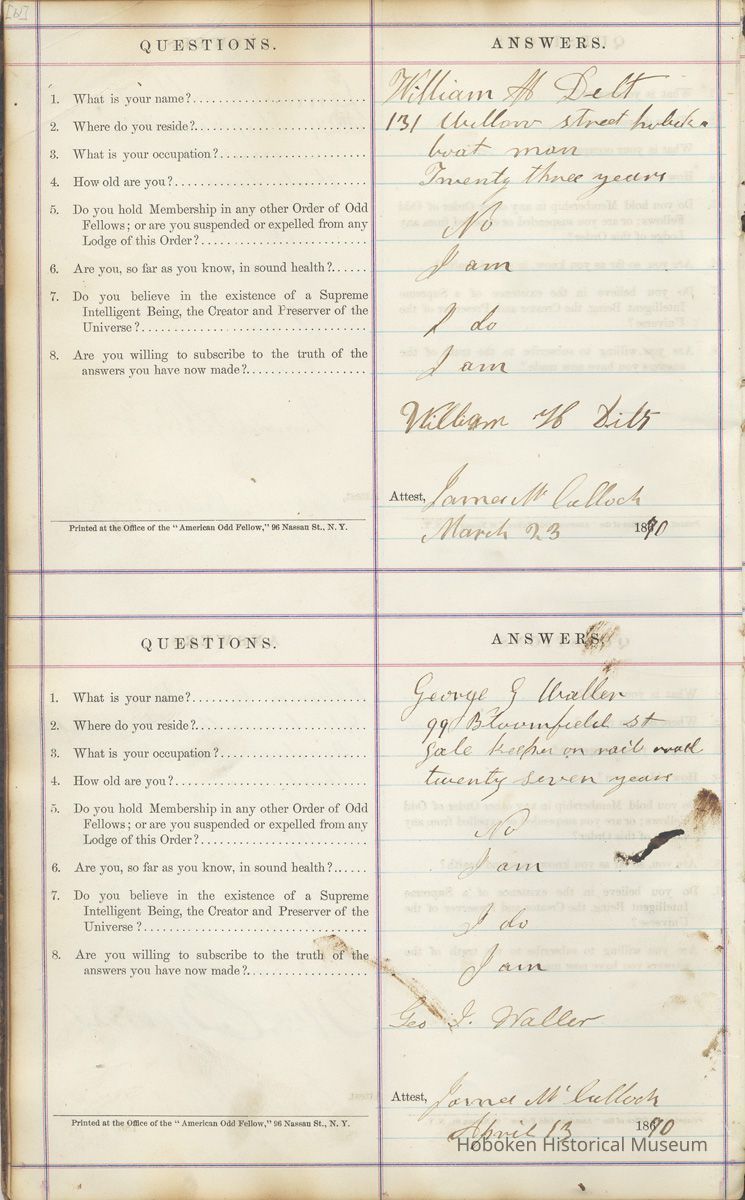 [61]
QUESTIONS. ANSWERS.
1. What is your name? William H Delt
2. Where do you reside? 131 Willow street
3. What is your occupation? boat man
4. How old are you? Twenty three years
5. Do you hold Membership in any other Order of Odd
Fellows; or are you suspended or expelled from any
Lodge of this Order? No
6. Are you, so far as you know, in sound health? I am
7. Do you believe in the existence of a Supreme
Intelligent Being, the Creator and Preserver of the
Universe? I do
8. Are you willing to subscribe to the truth of the
answers you have now made? I am
William H Dilts
Attest, James McCulloch
Printed at the Office of the "American Odd Fellow," 96 Nassau St., N. Y.
March 23 1870
QUESTIONS. ANSWERS.
1. What is your name? George G Waller
2. Where do you reside? 99 Bloomfield St
3. What is your occupation? gate keeper on rail road
4. How old are you? twenty seven years
5. Do you hold Membership in any other Order of Odd
Fellows; or are you suspended or expelled from any
Lodge of this Order? No
6. Are you, so far as you know, in sound health? I am
7. Do you believe in the existence of a Supreme
Intelligent Being, the Creator and Preserver of the
Universe? I do
8. Are you willing to subscribe to the truth of the
answers you have now made? I am
Geo J. Waller
Attest, James McCulloch
Printed at the Office of the "American Odd Fellow," 96 Nassau St., N. Y.
April 13 1870
Hoboken Historical Museum